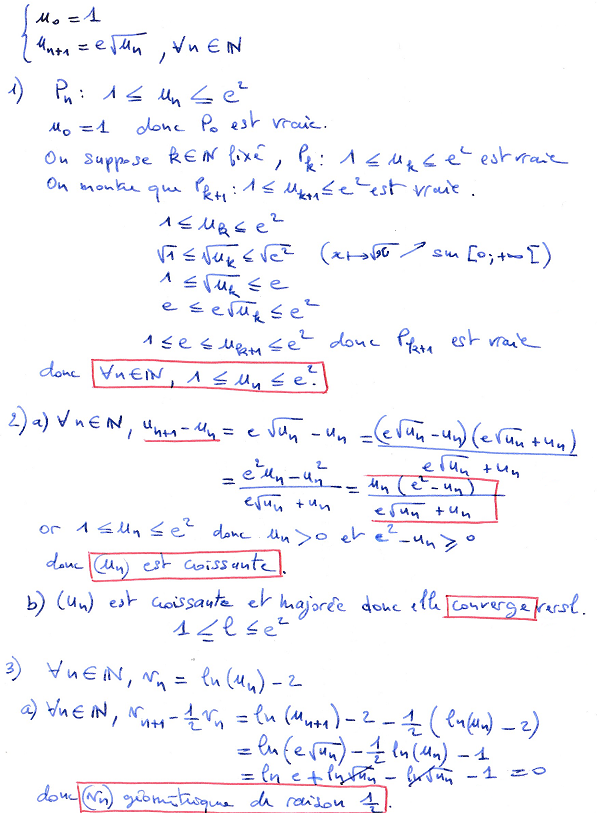 { u₀ = 1
uₙ₊₁ = e√uₙ , ∀n ∈ ℕ
1) Pₙ : 1 ≤ uₙ ≤ e²
u₀ = 1 donc P₀ est vraie.
On suppose k∈ℕ fixé, Pₖ : 1 ≤ uₖ ≤ e² est vraie
On montre que Pₖ₊₁ : 1 ≤ uₖ₊₁ ≤ e² est vraie.
1 ≤ uₖ ≤ e²
√1 ≤ √uₖ ≤ √e² (x ↦ √x ↗ sur [0;+∞[)
1 ≤ √uₖ ≤ e
e ≤ e√uₖ ≤ e²
1 ≤ e ≤ uₖ₊₁ ≤ e² donc Pₖ₊₁ est vraie
donc ∀n∈ℕ, 1 ≤ uₙ ≤ e².
2) a) ∀n∈ℕ, uₙ₊₁ - uₙ = e√uₙ - uₙ = (e√uₙ - uₙ)(e√uₙ + uₙ) / (e√uₙ + uₙ)
= (e²uₙ - uₙ²) / (e√uₙ + uₙ) = uₙ(e² - uₙ) / (e√uₙ + uₙ)
or 1 ≤ uₙ ≤ e² donc uₙ > 0 et e² - uₙ ≥ 0
donc (uₙ) est croissante.
b) (uₙ) est croissante et majorée donc elle converge vers l.
1 ≤ l ≤ e²
3) ∀n∈ℕ, vₙ = ln(uₙ) - 2
a) ∀n∈ℕ, vₙ₊₁ - ½vₙ = ln(uₙ₊₁) - 2 - ½(ln(uₙ) - 2)
= ln(e√uₙ) - ½ ln(uₙ) - 1
= ln e + ln√uₙ - ln√uₙ - 1 = 0
donc (vₙ) géométrique de raison ½.